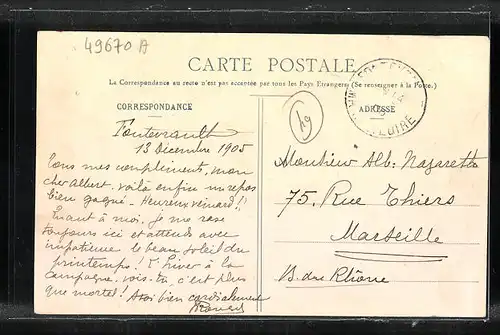 49670 A
CARTE POSTALE
La Correspondance au recto n'est pas acceptée par tous les Pays Etrangers (Se renseigner à la Poste.)
CORRESPONDANCE
ADRESSE
19
LOIRE
Fontevrault
13 Décembre 1905
Tous mes compliments, mon
cher Albert, voilà enfin un repos
bien gagné - Heureux veinard!!
Quant à moi, je me rase
toujours ici et attends avec
impatience le beau soleil du
printemps! L'hiver à la
campagne, vois-tu, c'est plus
que mortel! A toi bien cordialement
Monsieur Alb: Nazaretto
75, Rue Thiers
Marseille
B. du Rhône